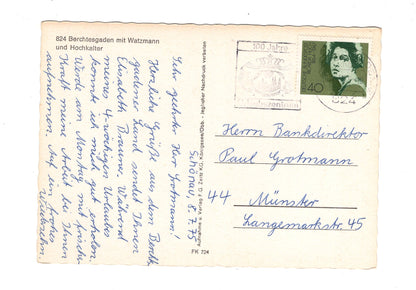 824 Berchtesgaden mit Watzmann
und Hochkalter
Schönau, 8.7.75
Sehr geehrter Herr Grotmann!
Herzliche Grüße aus dem Berchtes-
gadener Land sendet Ihnen
Elisabeth Während
meines 4-wöchigen Urlaubes
konnte ich mich gut erholen.
Werde am Montag mit frischer
Kraft meine Arbeit bei Ihnen
aufnehmen. Auf ein frohes
Wiedersehn
Aufnahme u. Verlag F. G. Zeitz KG., Königssee/Obb. - jeglicher Nachdruck verboten
FK 724
100 Jahre
40
824
Herrn Bankdirektor
Paul Grotmann
44 Münster
Langemarkstr. 45